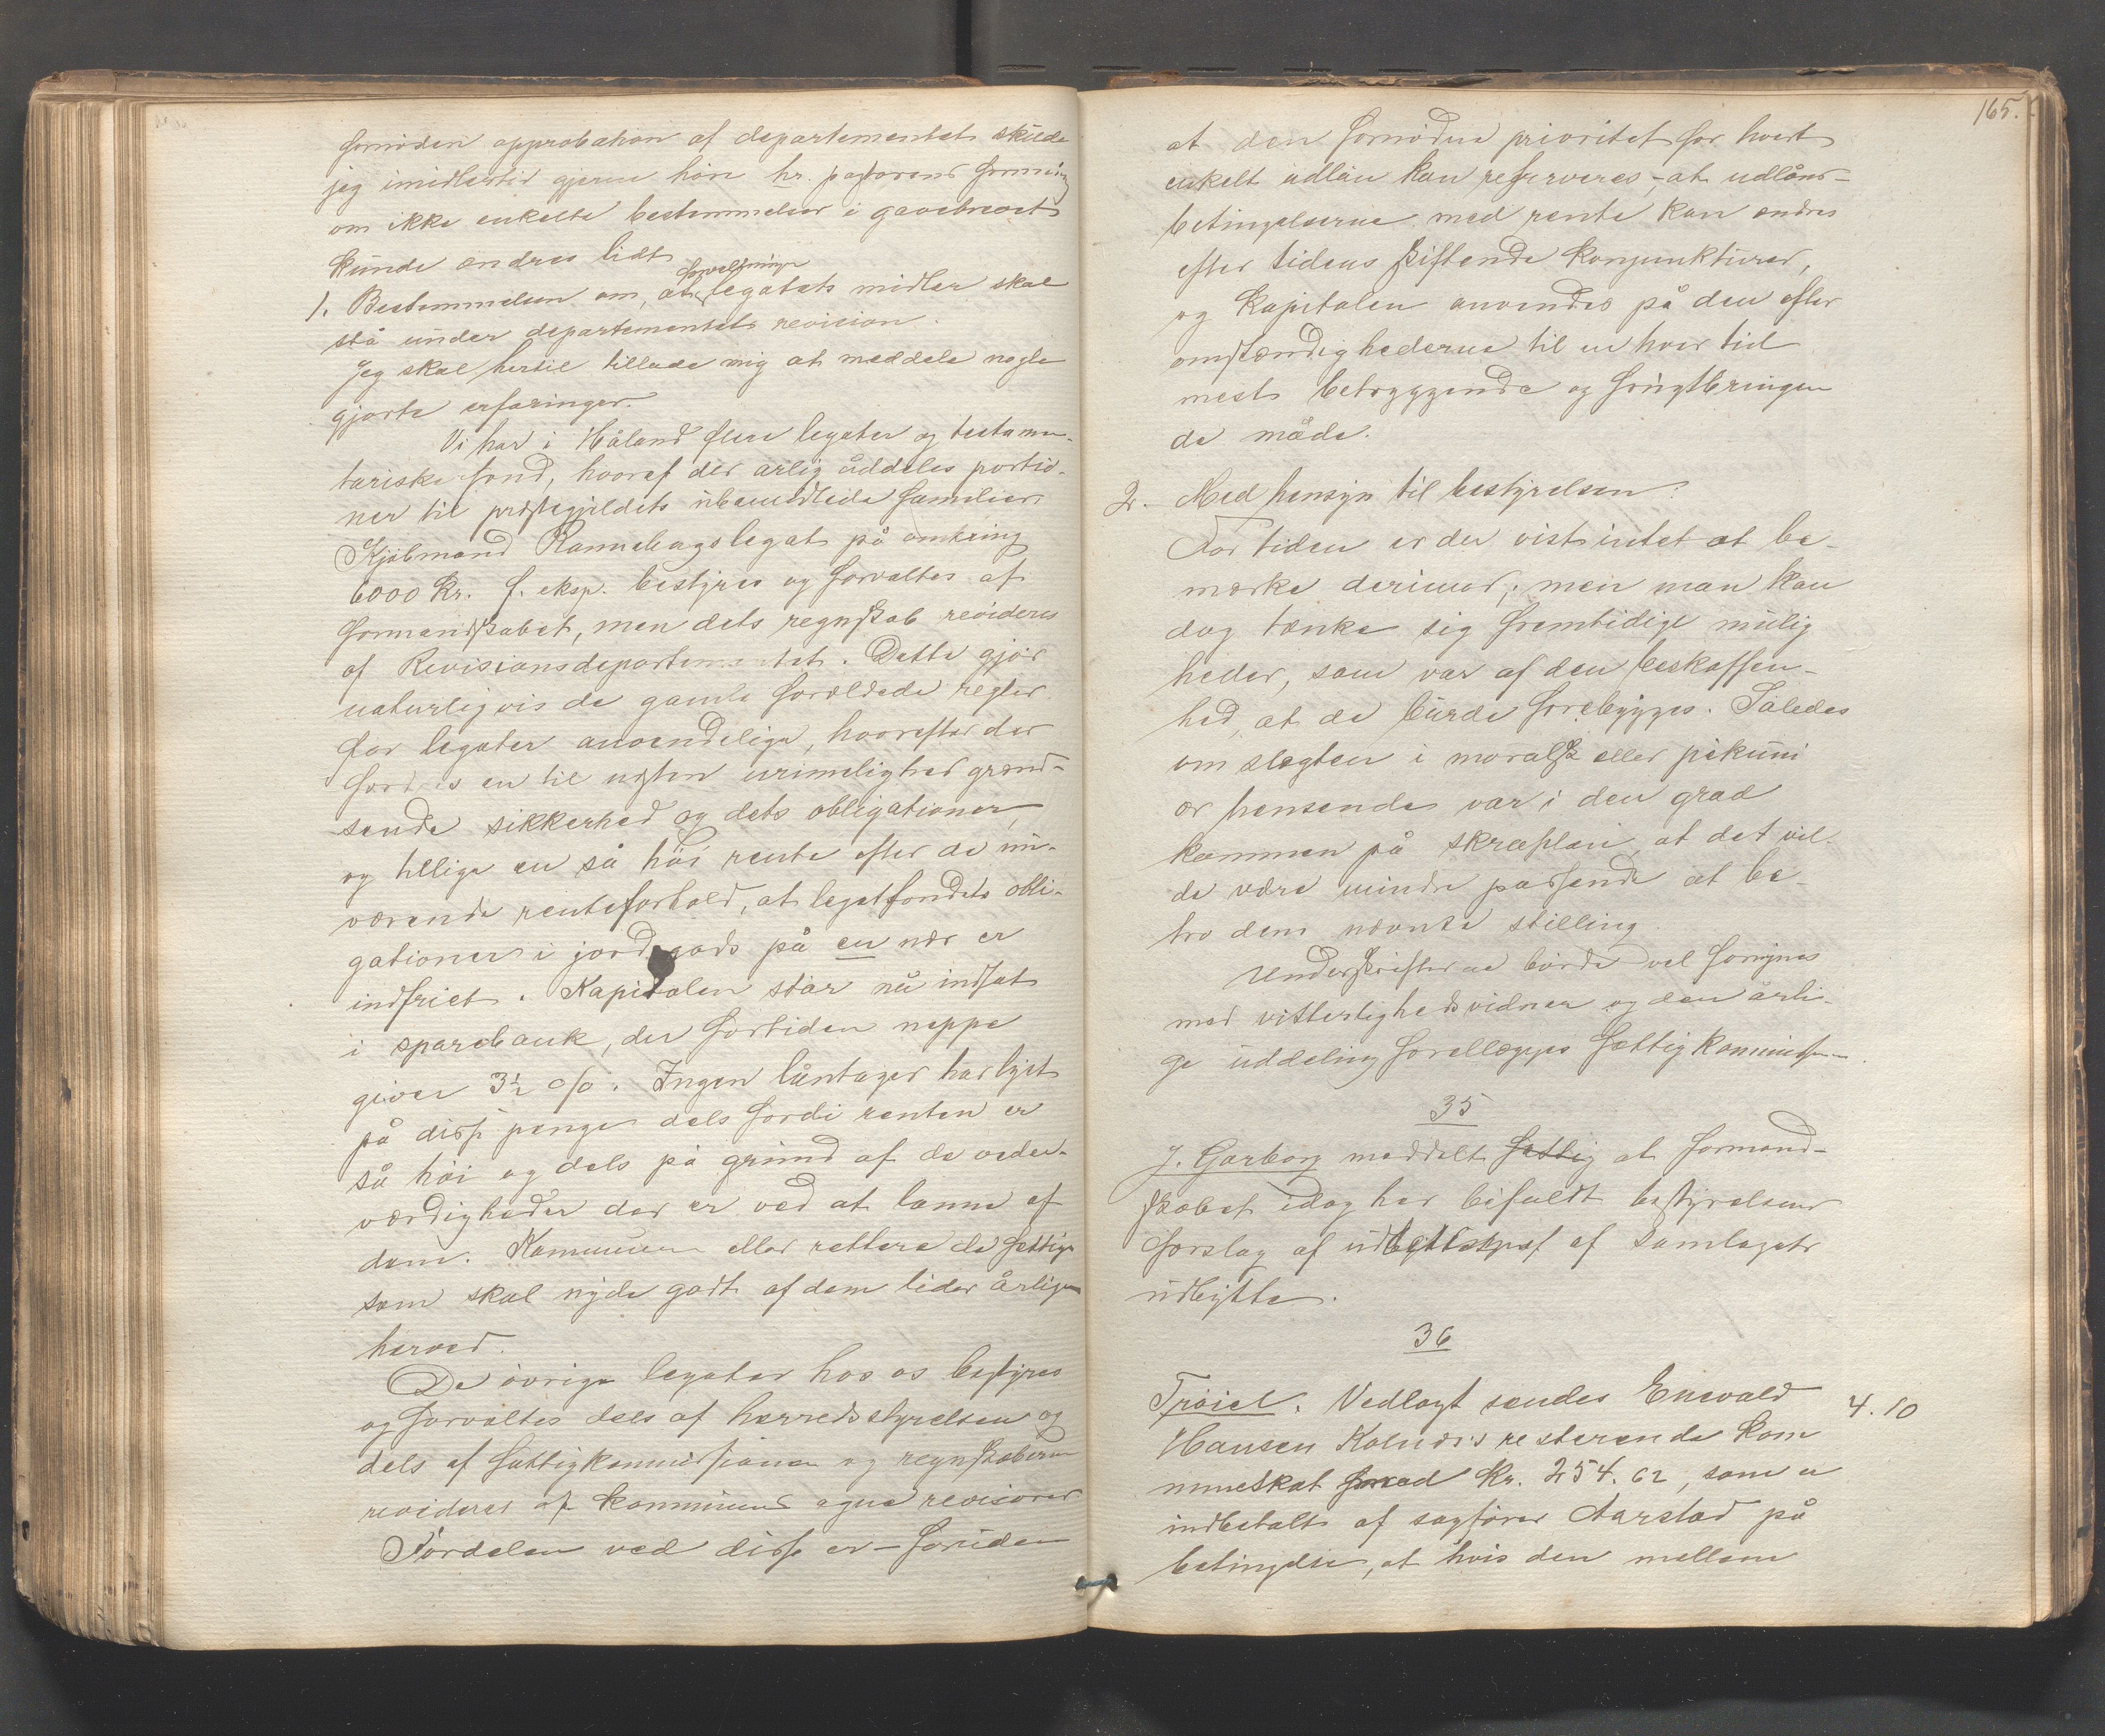 fornöden approbation af departementet skulde
jeg imidlertid gjerne höre hr. pastorens formening
om ikke enkelte bestemmelser i gavebrevet
kunde ændres lidt
1. Bestemmelsen om, at legatets midler skal
stå under departementets revision.
Jeg skal hertil tillade mig at meddele nogle
gjorte erfaringer.
Vi har i Håland flere legater og testamen-
tariske fond, hvoraf der årlig uddeles portio-
ner til præstegjeldets ubemidlede familier.
Kjöbmand Rannebergs legat på omkring
6000 Kr. f. eksp. bestyres og forvaltes af
formandskabet, men dets regnskab revideres
af Revisionsdepartementet. Dette gjör
naturligvis de gamle forældede regler
for legater anvendelige, hvorefter der
fordres en til næsten urimelighed grænd-
sende sikkerhed og dets obligationer,
og tillige en så höi rente efter de nu-
værende renteforhold, at legatfondets obli-
gationer i jordegods på en nær er
indfriet. Kapitalen står nu indsat
i sparebank, der fortiden neppe
giver 3½ o/o. Ingen låntager har lyst
på disse penge dels fordi renten er
så höi og dels på grund af de veder-
værdigheder der er ved at låne af
dem. Kommunen eller rettere de fattige
som skal nyde godt af dem lider årligen
herved.
De övrige legater hos os bestyres
og forvaltes dels af herredsstyrelsen og
dels af fattigkommissionen og regnskaberne
revideres af kommunens egne revisorer.
Fordelen ved disse er – foruden
165.
at den fornödne prioritet for hvert
enkelt udlån kan reserveres – at udlåns-
betingelserne med rente kan ændres
efter tidens skiftende konjunkturer,
og kapitalen anvendes på den efter
omstændighederne til en hver tid
mest betryggende og frugtbringen
de måde.
2. Med hensyn til bestyrelsen:
For tiden er der vist intet at be-
mærke derimod; men man kan
dog tænke sig fremtidige mulig
heder, som var af den beskaffen-
hed, at de burde forebygges. Således
om slægten i moralsk eller pekuni
ær henseende var i den grad
kommen på skråplan, at det vil-
de være mindre passende at be-
tro dem nævnte stilling.
Underskrifterne burde vel forsynes
med vitterlighedsvidner og den årli-
ge uddeling forelægges fattigkommissionen.
35
J. Garborg meddelt fattig at formand-
skabet idag har bifaldt bestyrelsens
forslag af af samlagets
udbytte.
36
Tröiel. Vedlagt sendes Enevald 4.10
Hansen Kolnæs's resterende kom
muneskat med Kr. 254.62, som er
indbetalt af sagförer Aarstad på
betingelse, at hvis den mellem